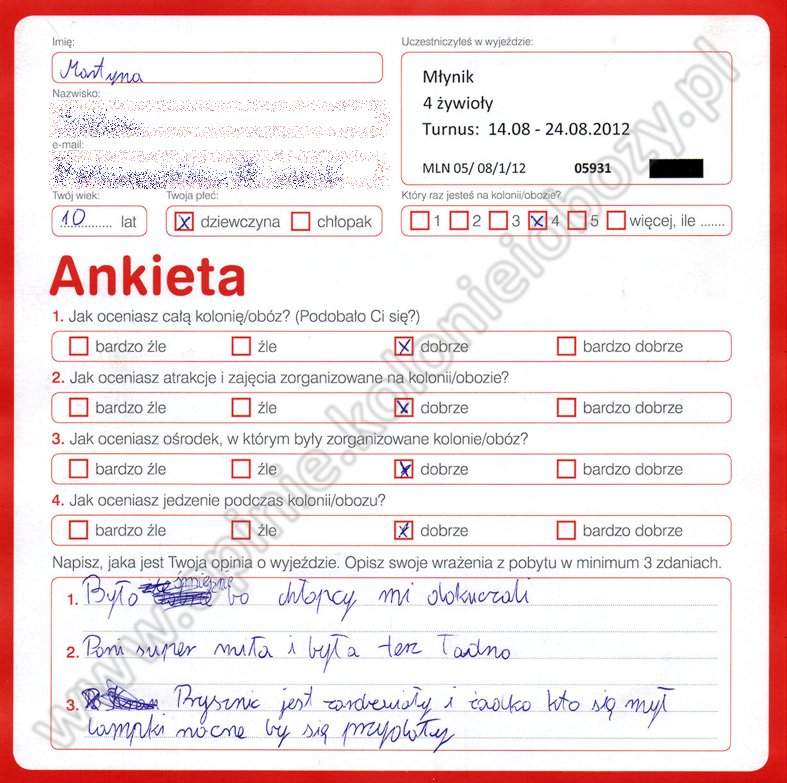 Imię:
Martyna
Nazwisko:
e-mail:
Twój wiek:
10 lat
Twoja płeć:
dziewczyna chłopak
Uczestniczyłeś w wyjeździe:
Młynik
4 żywioły
Turnus: 14.08 - 24.08.2012
MLN 05/ 08/1/12 05931
Który raz jesteś na kolonii/obozie?
1 2 3 4 5 więcej, ile .......
Ankieta
1. Jak oceniasz całą kolonię/obóz? (Podobało Ci się?)
bardzo źle źle dobrze bardzo dobrze
2. Jak oceniasz atrakcje i zajęcia zorganizowane na kolonii/obozie?
bardzo źle źle dobrze bardzo dobrze
3. Jak oceniasz ośrodek, w którym były zorganizowane kolonie/obóz?
bardzo źle źle dobrze bardzo dobrze
4. Jak oceniasz jedzenie podczas kolonii/obozu?
bardzo źle źle dobrze bardzo dobrze
Napisz, jaka jest Twoja opinia o wyjeździe. Opisz swoje wrażenia z pobytu w minimum 3 zdaniach.
1. Było śmiesznie bo chłopcy mi dokuczali
2. Pani super miła i była też ładno
3. Prysznic jest zardewiały i żadko kto się mył
lampki nocne by się przydoły
www.opinie.kolonieiobozy.pl